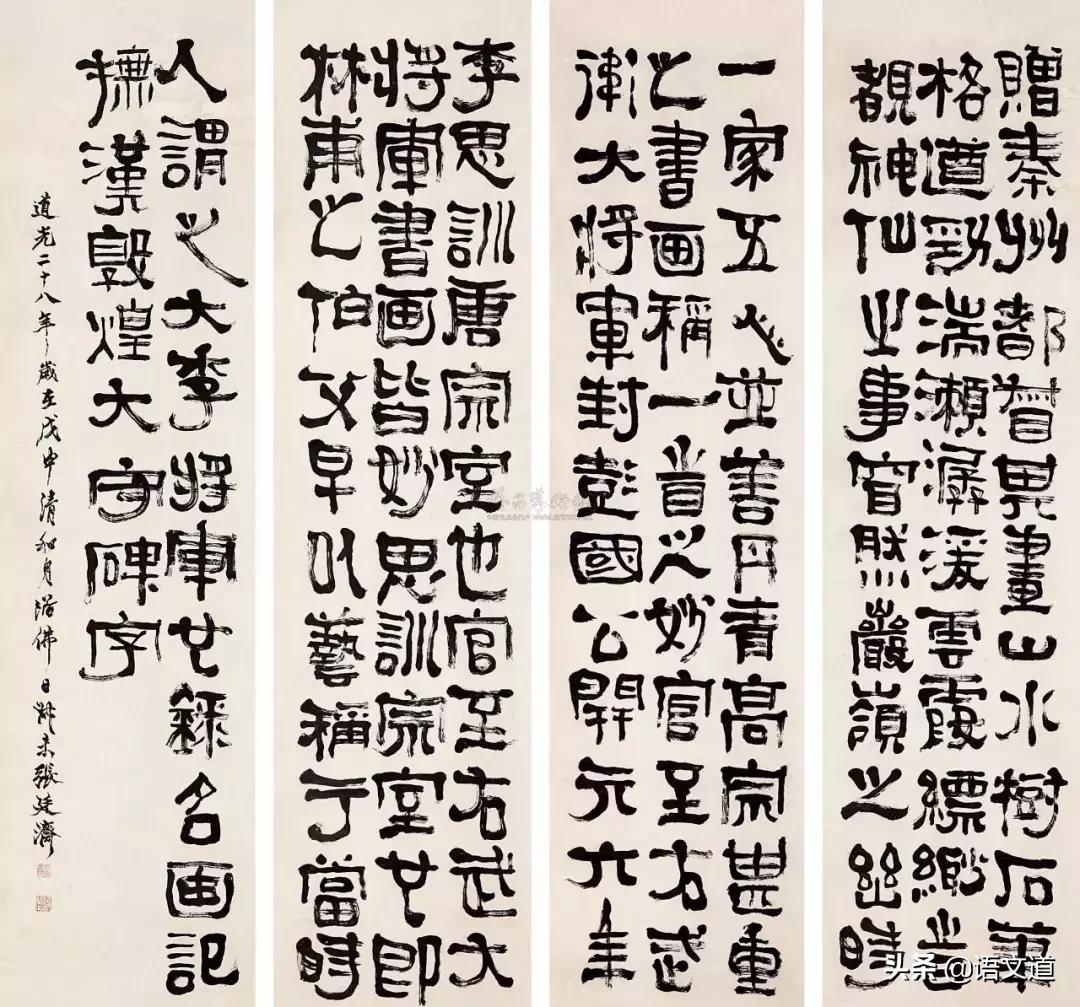 贈秦州都督其畫山水樹石筆
格遒勁湍瀨潺湲雲霞縹緲旹
覩神仙之事窅然巖嶺之幽時
一家五人並善丹青高宗甚重
之書画稱一旹之妙官至右武
衛大將軍封彭國公開元六年
李思訓唐宗室也官至右武大
將軍書画皆妙思訓宗室也即
林甫之伯父早以藝稱于當時
人謂之大李將軍也錄名画記
撫漢敦煌大守碑字
道光二十八年歲在戊申清和月浴佛日叔未張廷濟
头条 @语文道